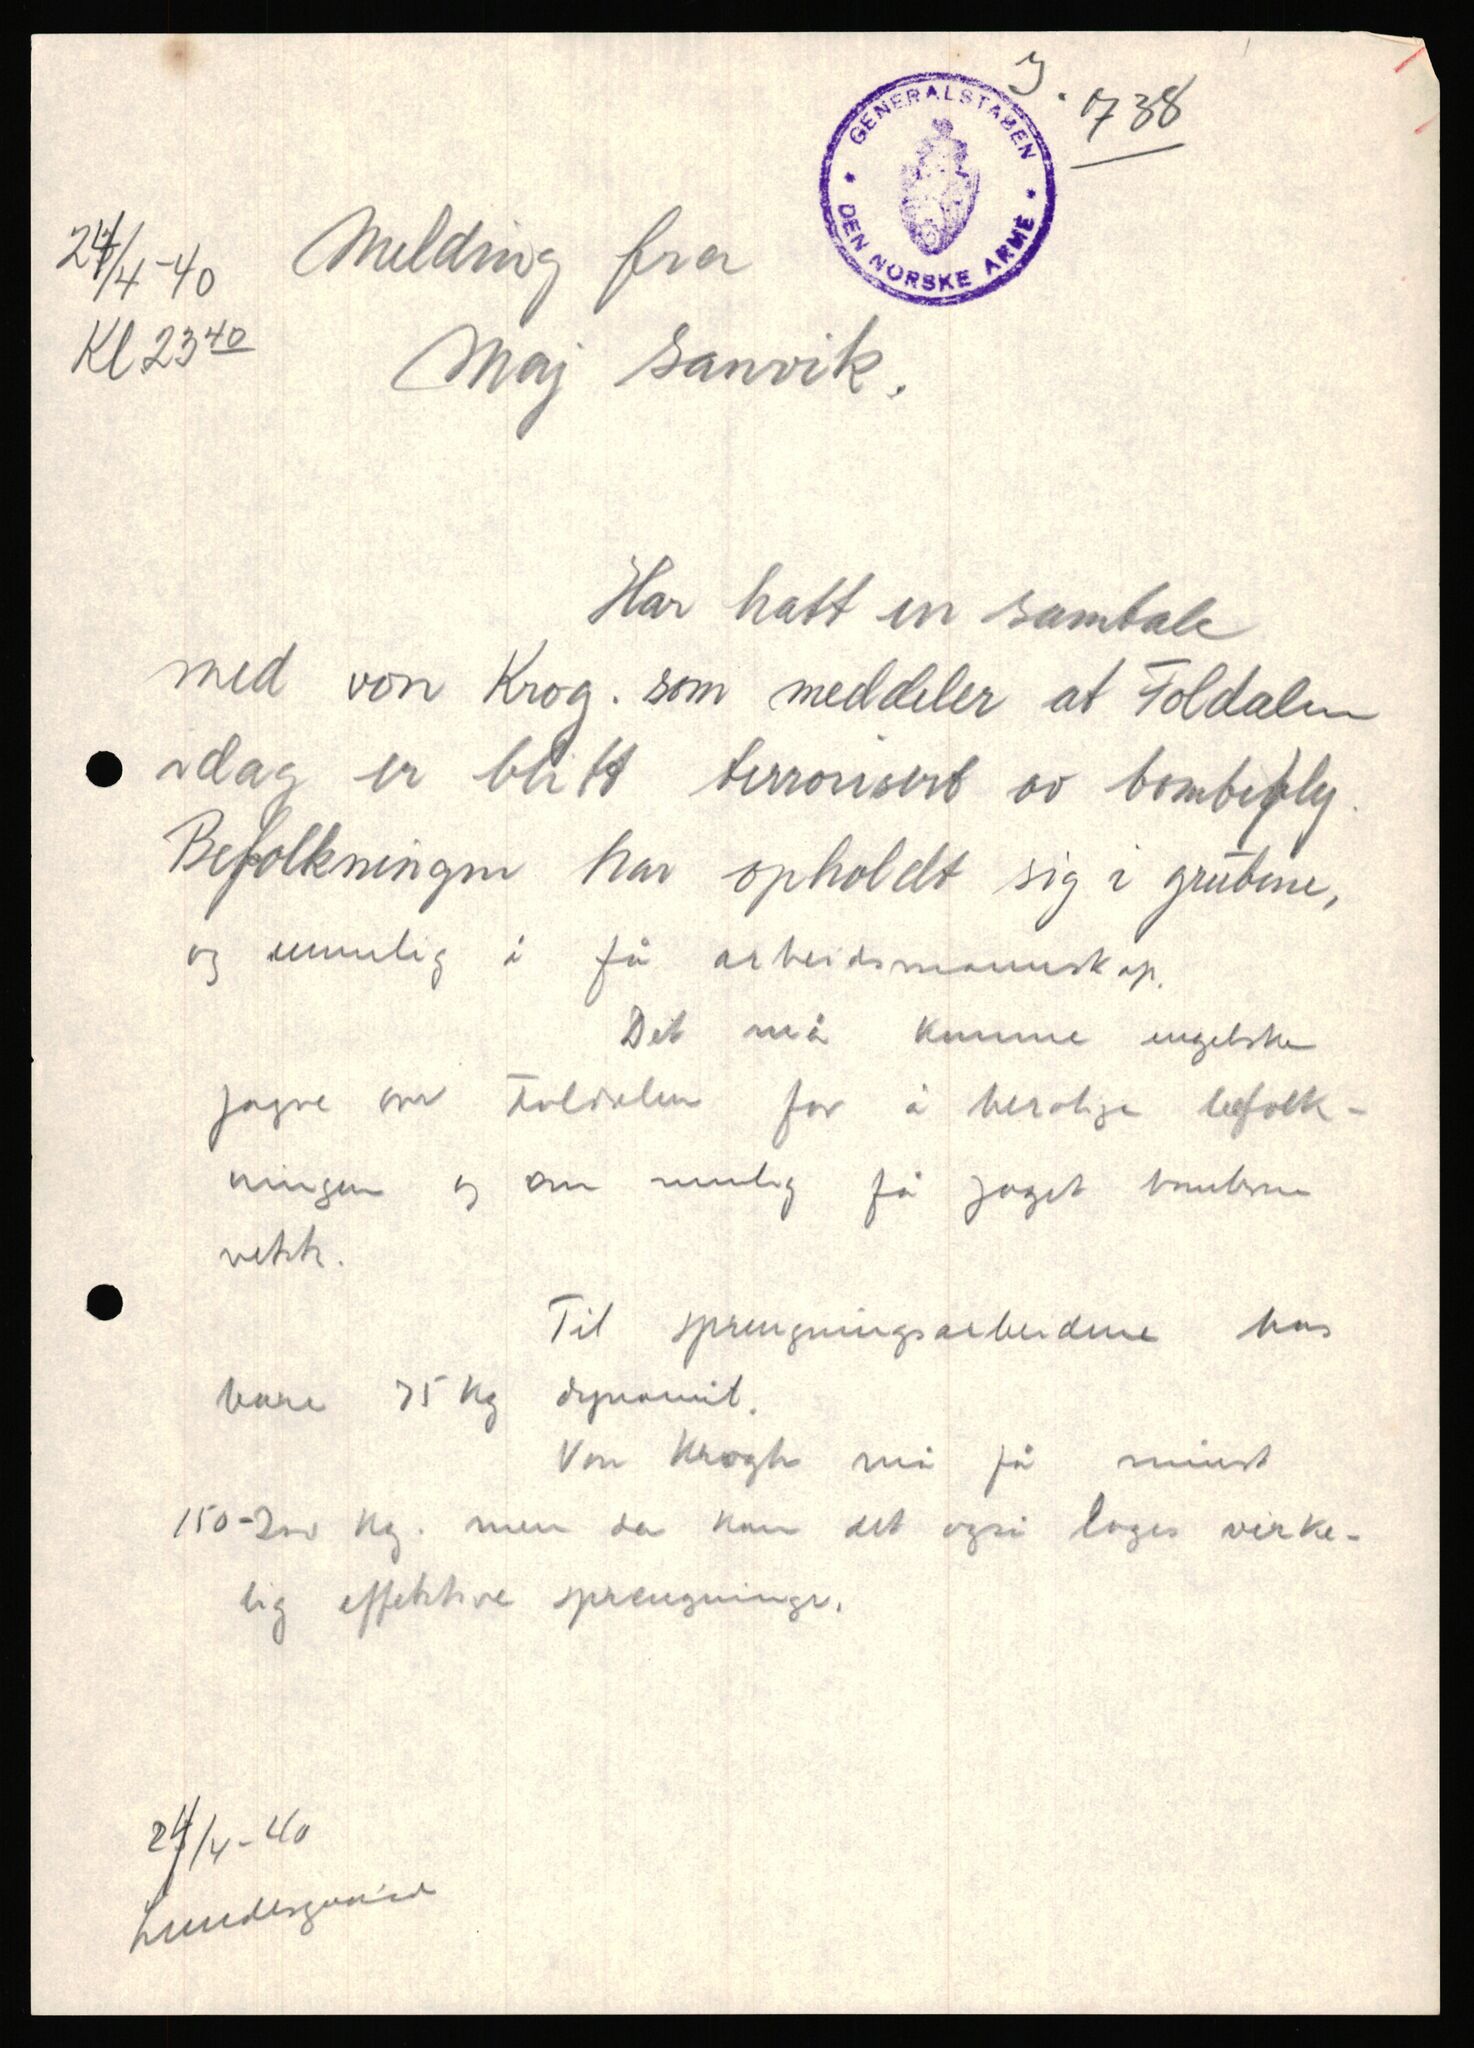 J. 738
GENERALSTABEN
DEN NORSKE ARME
24/4-40 Melding fra
Kl 23 40 Maj Sanvik.
Har hatt en samtale
med von Krog. som meddeler at Foldalen
idag er blitt terrorisert av bombefly.
Befolkningen har opholdt sig i grubene,
og umulig å få arbeidsmannskap.
Det må komme engelske
jagere over Foldalen for å berolige befolk-
ningen og om mulig få jaget bomberne
vekk.
Til sprengningsarbeidene has
bare 75 kg dynamit.
Von Krogh må få minst
150-200 kg. men da kan det også lages virke-
lig effektive sprengninger.
24/4-40
Lundesgaard